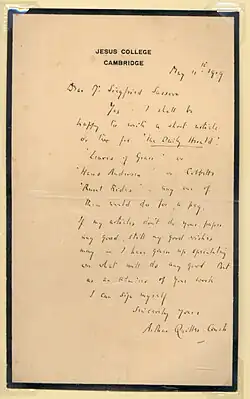 JESUS COLLEGE
CAMBRIDGE
May 11th 1919
Dear Mr Siegfried Sassoon
Yes. I shall be
happy to write a short article
or two for 'the Daily Herald'
'Leaves of Grass' or
'Hans Andersen' or Cobbett's
'Rural Rides' — any one of
them would do for a peg.
If my articles don't do your paper
any good still my good wishes
may — I have given up speculating
on what will do any good. But
as an admirer of your work
I can sign myself
Sincerely Yours
Arthur Quiller-Couch